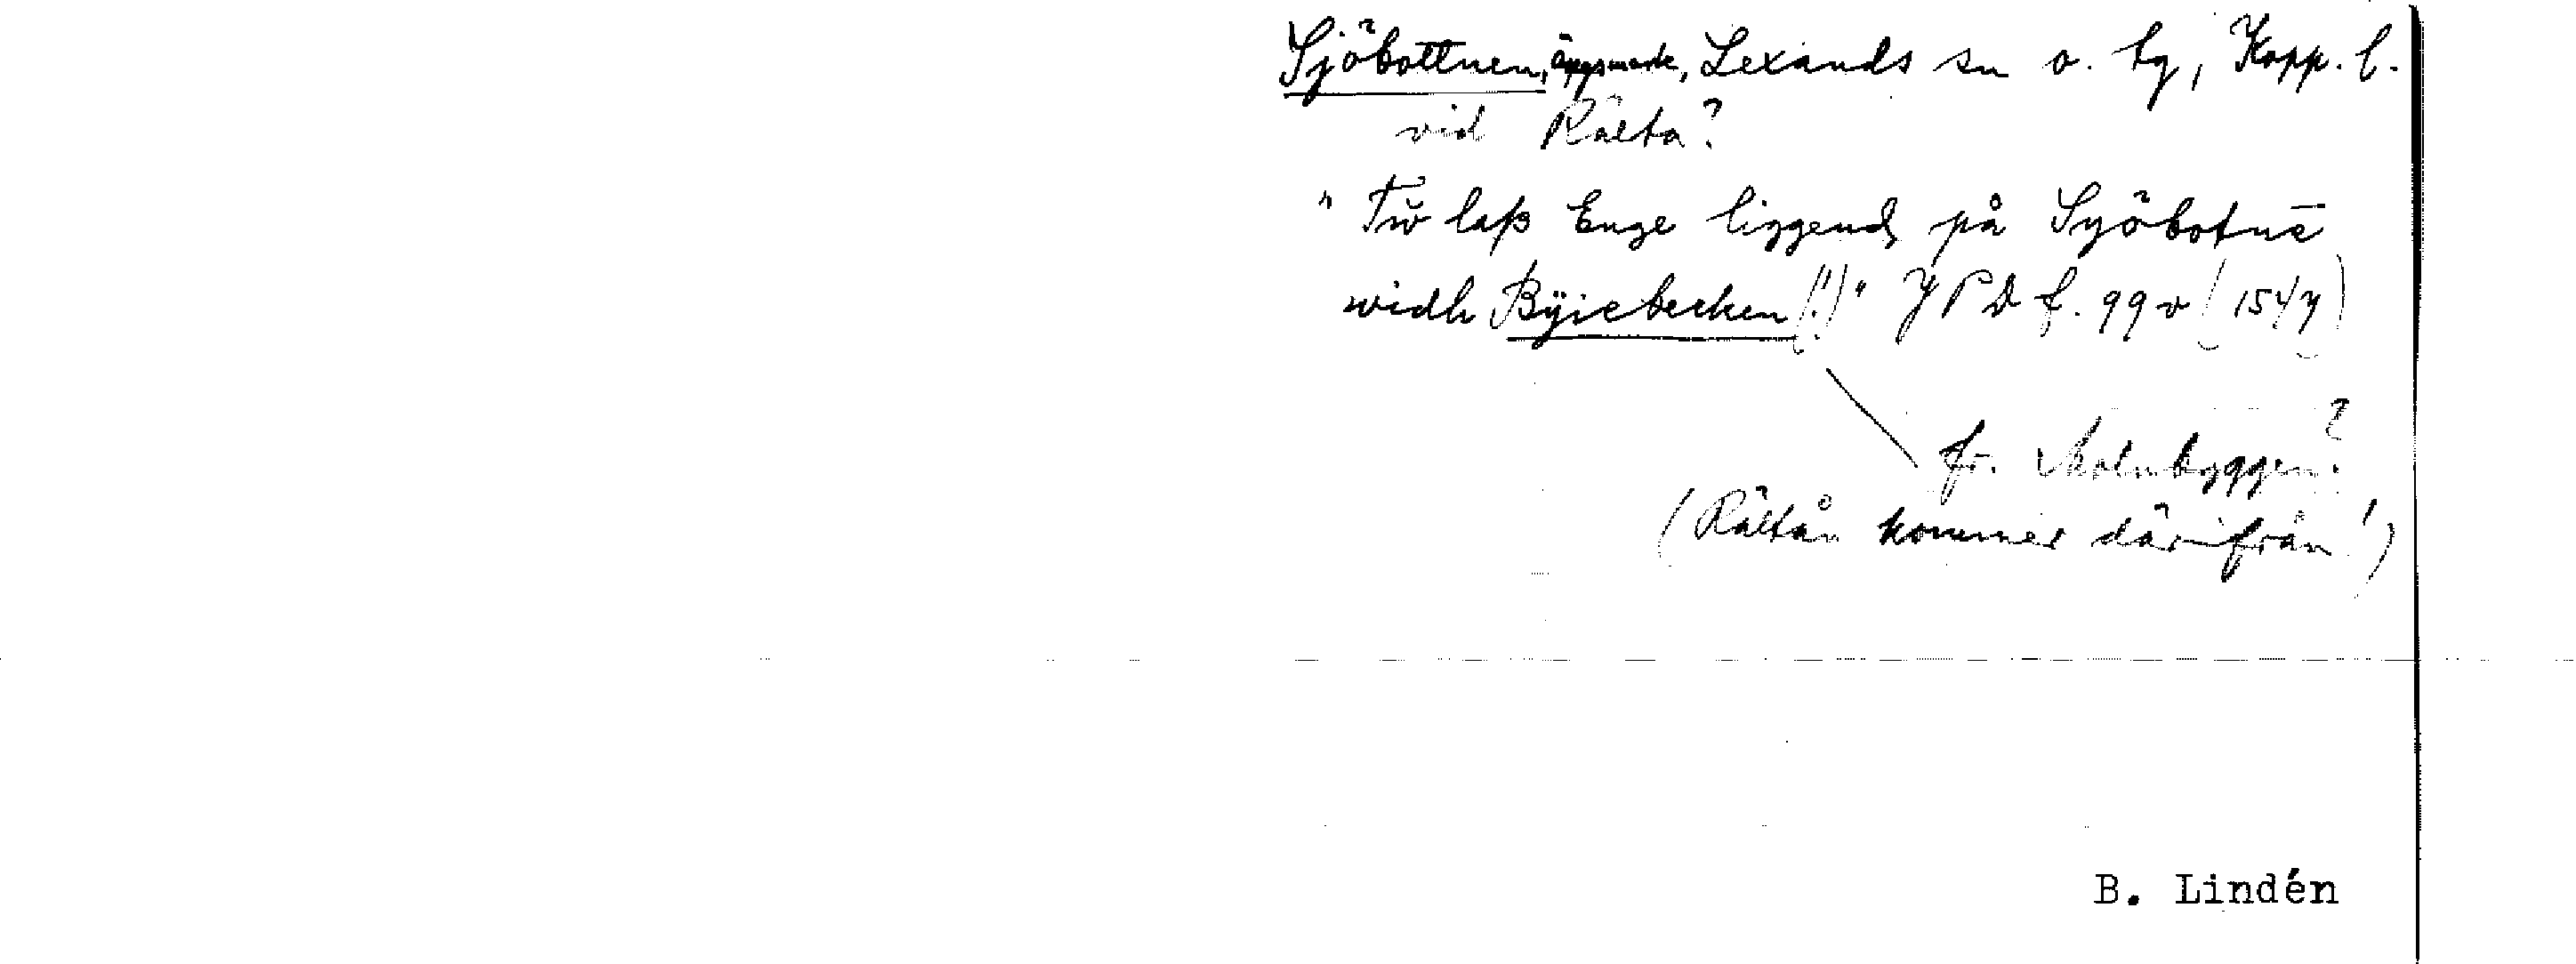 Sjöbottnen, ängsmark, Lexands sn o. tg, Kopp. l.
vid Rälta?
" Tw laß Enge liggend på Syöbotnē
widh Byiebecken (!)" JPD f. 99 v (1547)
fr. Molnbyggen?
(Rältån kommer därifrån!)
B. Lindén